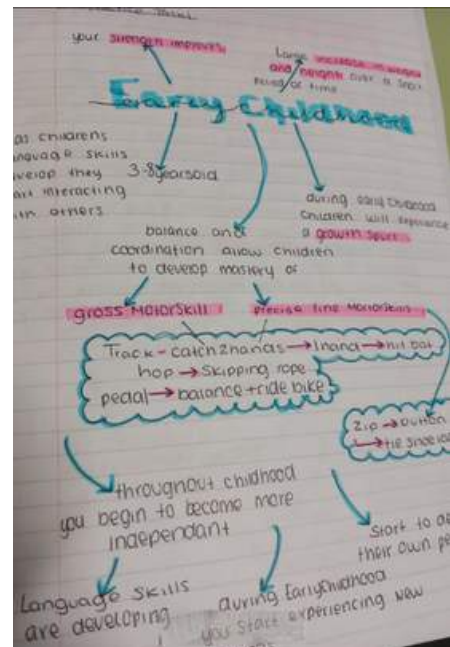 your strength improves
Large increase in weight
and height over a short
Period of time
Early Childhood
as childrens
language skills
develop they
start interacting
with others
3-8 years old
during early childhood
children will experience
a growth spurt
balance and
coordination allow children
to develop mastery of
gross Motor Skill
precise fine Motor Skill
Track - catch 2 hands → 1 hand → hit bat
hop → skipping rope
pedal → balance + ride bike
Zip → button
→ tie shoe
throughout childhood
you begin to become more
independant
Start to
their own
Language skills
are developing
during Early Childhood
you start experiencing new